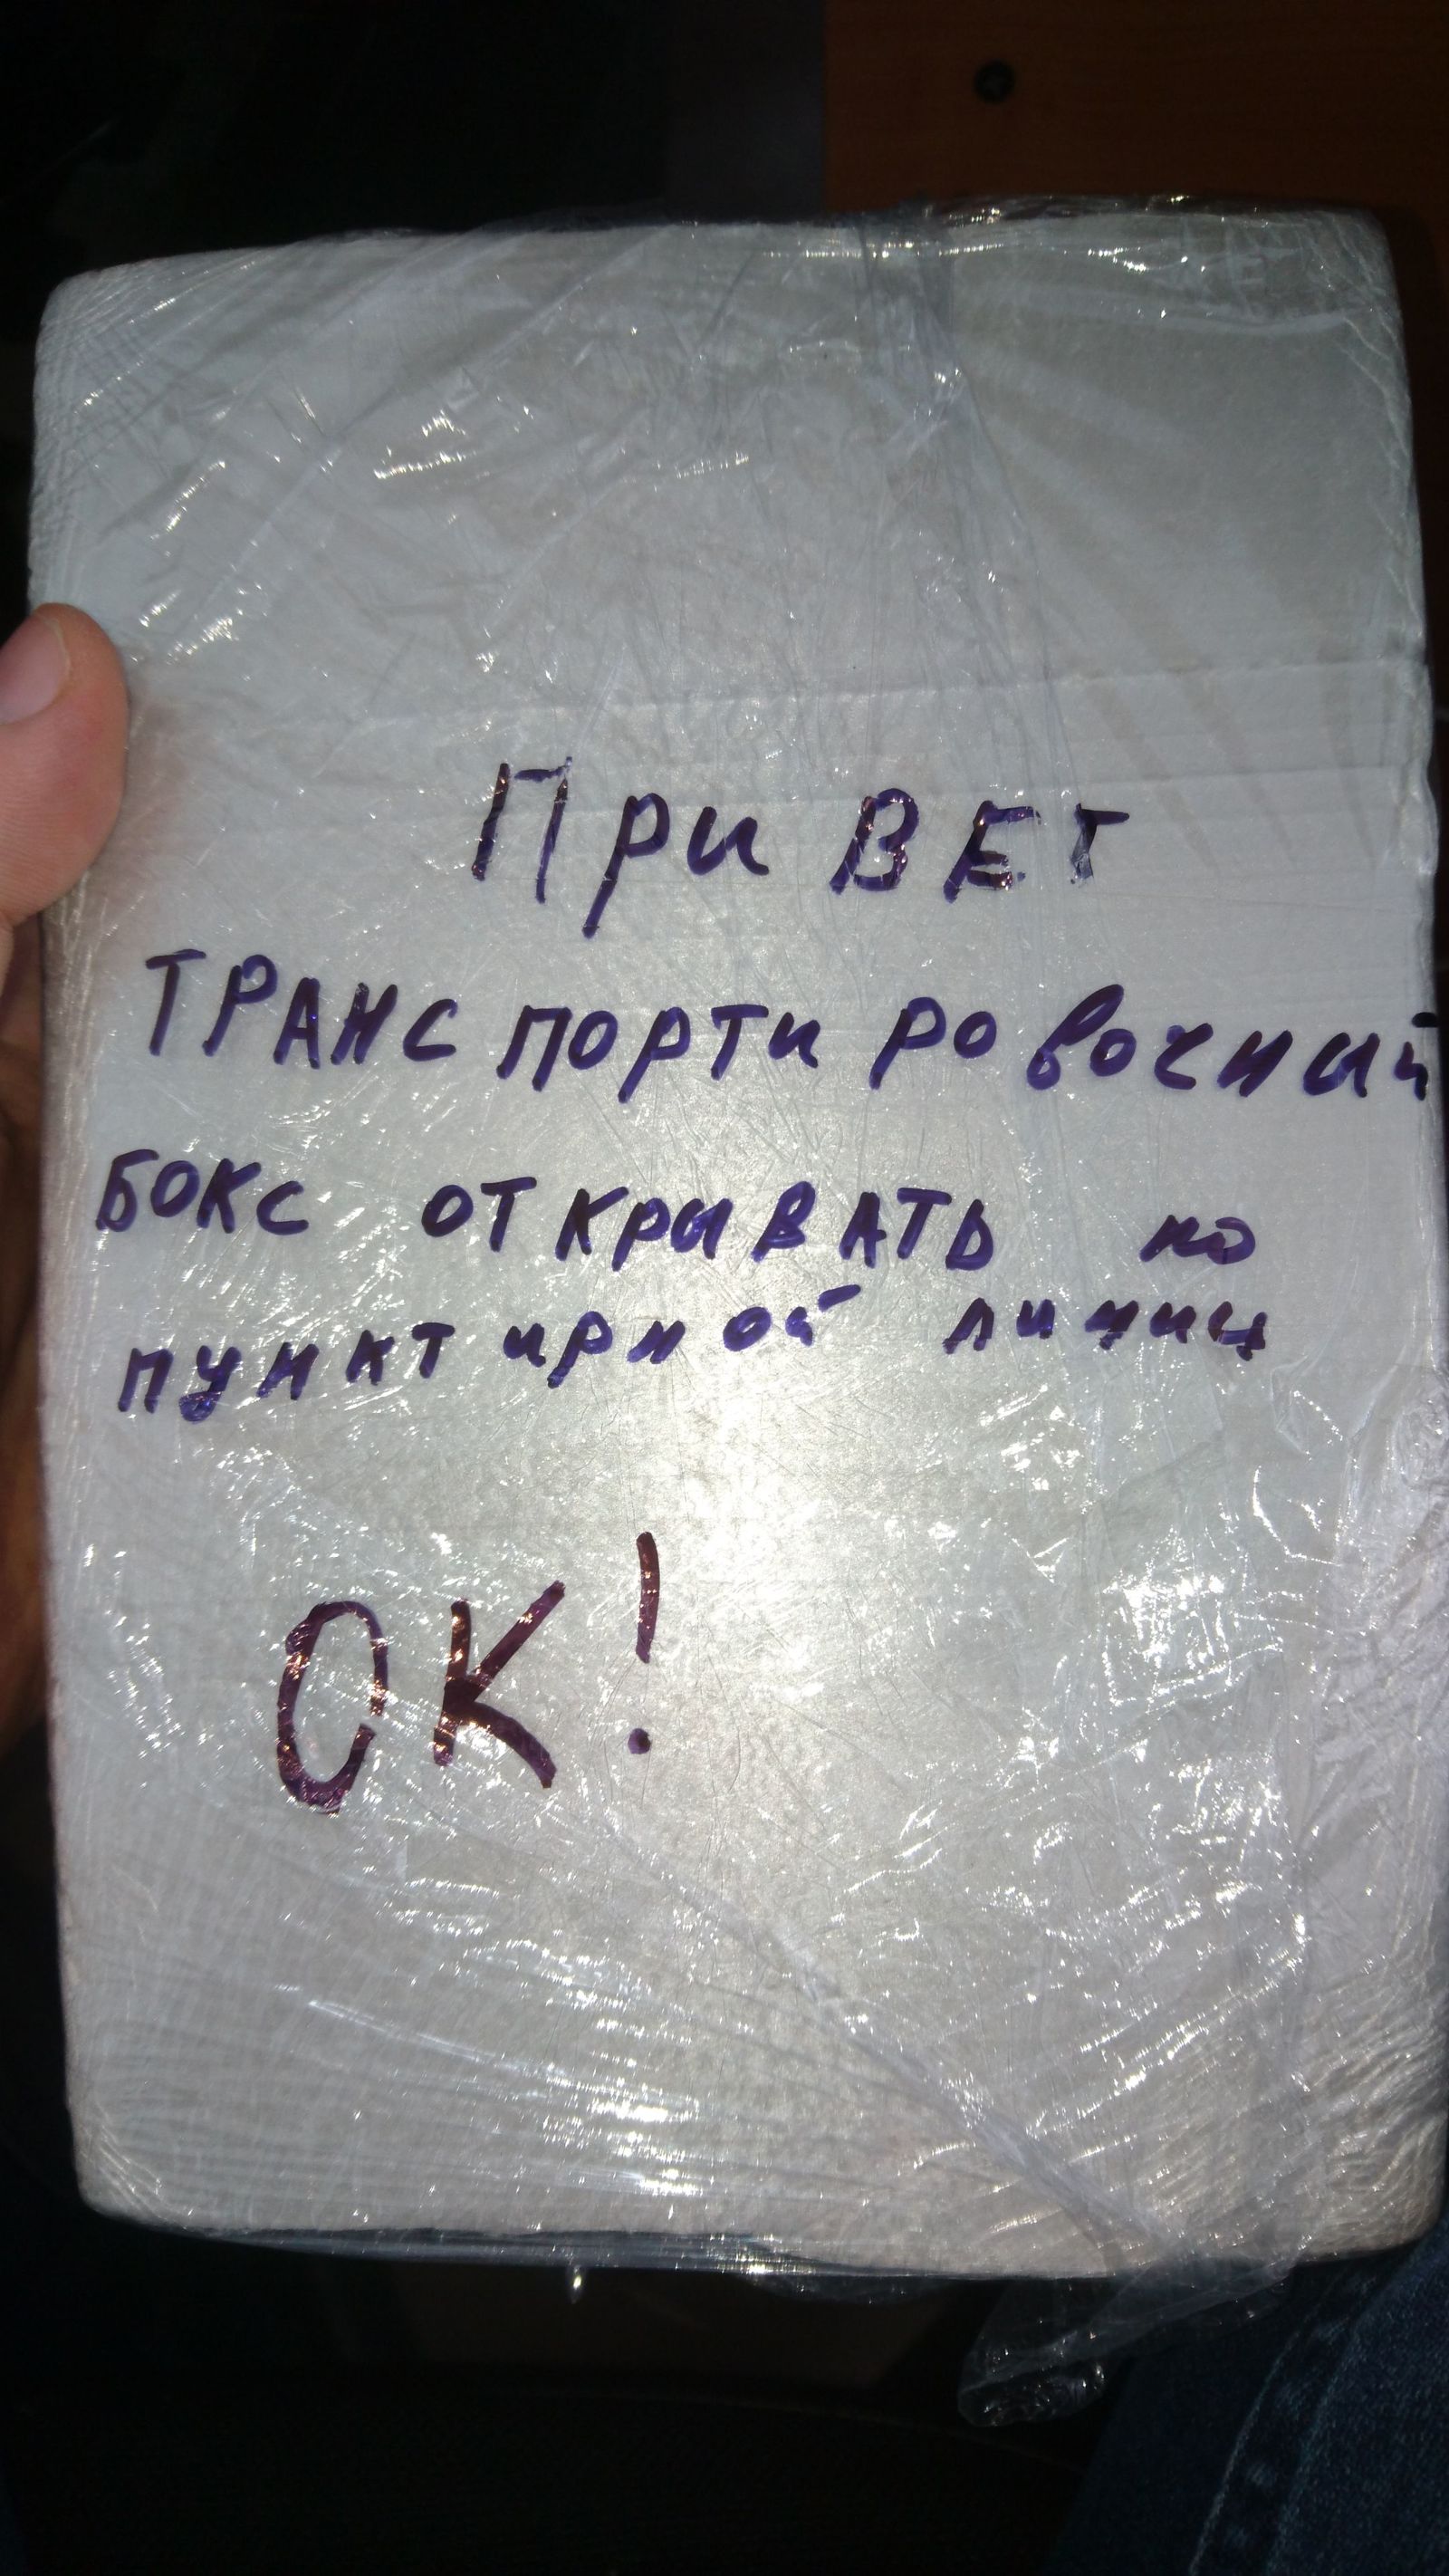 ПриВЕТ
ТРАНСпортировочный
БОКС ОТКрыВАТЬ по
пунктирной линии
ОК!